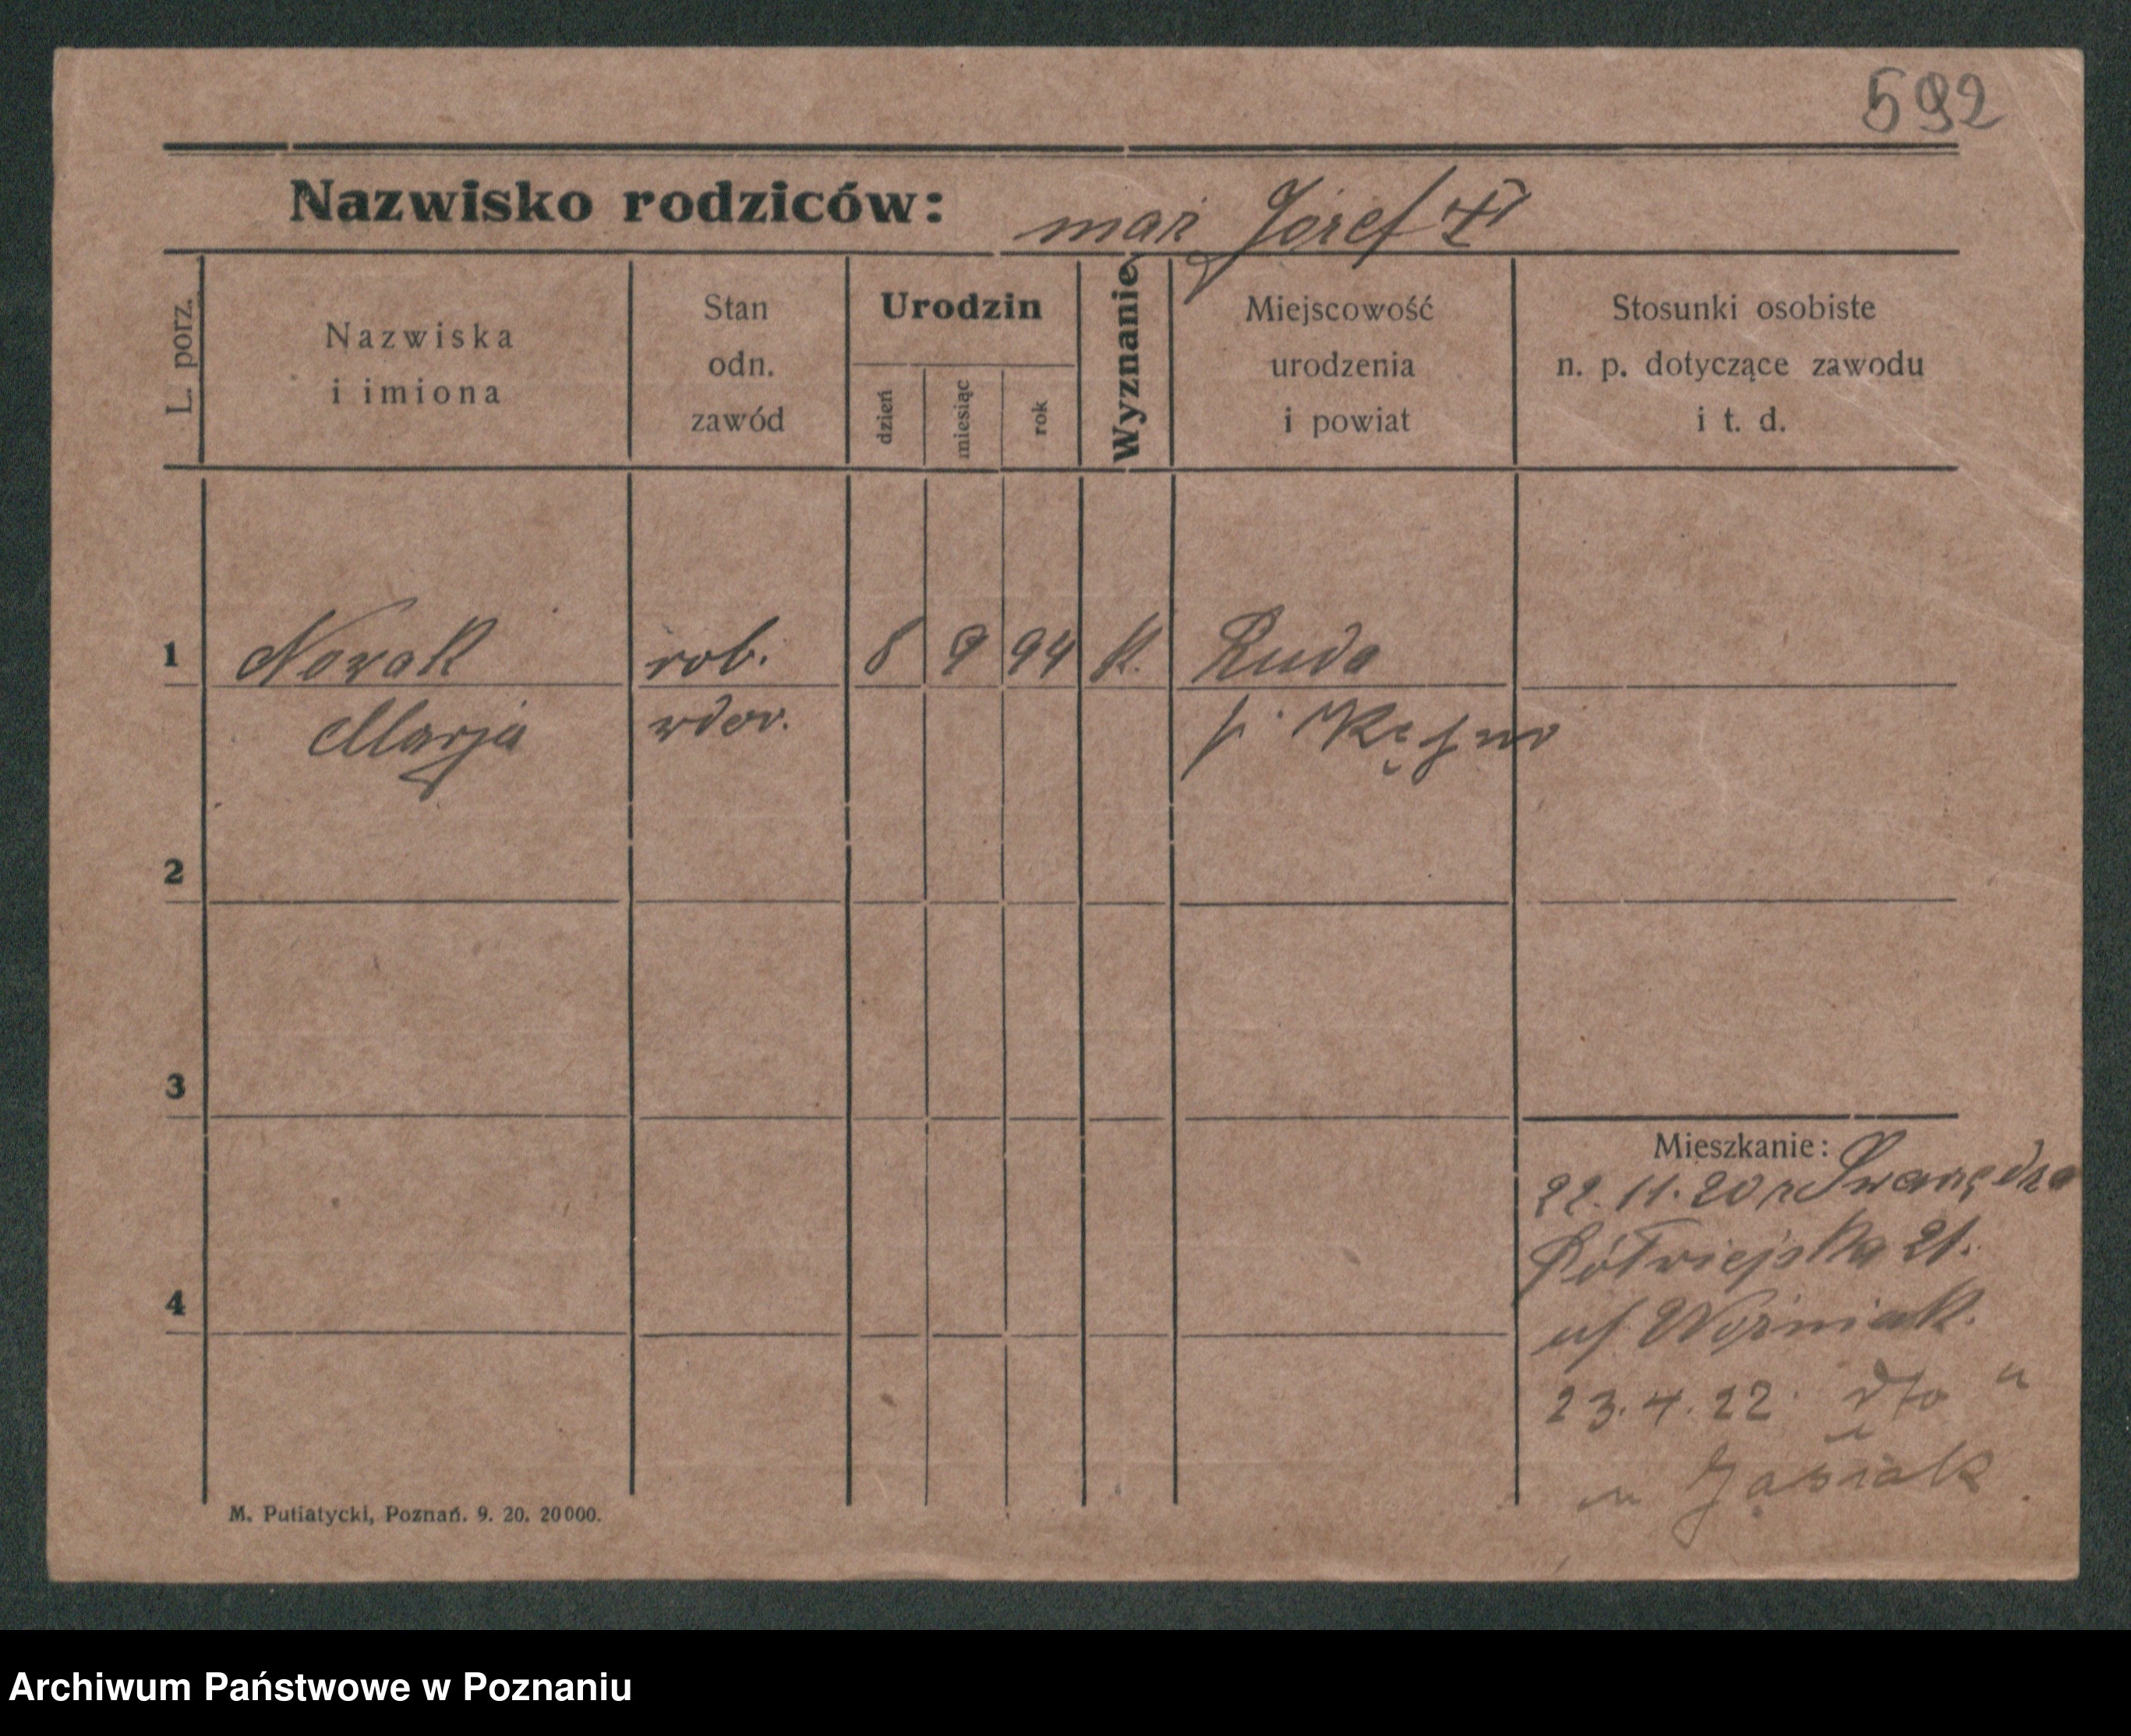 592
Nazwisko rodziców: mąż Józef
L. porz.
Nazwiska
i imiona
Stan
odn.
zawód
Urodzin
dzień
miesiąc
rok
Wyznanie
Miejscowość
urodzenia
i powiat
Stosunki osobiste
n. p. dotyczące zawodu
i t. d.
1 Nowak rob. 8 9 94 k. Ruda
Marja wdow. p.
2
3
Mieszkanie:
22.11.20 z Swarzędza
Półwiejska 21.
4
u/ Woźniak.
23.4.22 dto "
M. Putiatycki, Poznań. 9. 20. 20000.
Archiwum Państwowe w Poznaniu